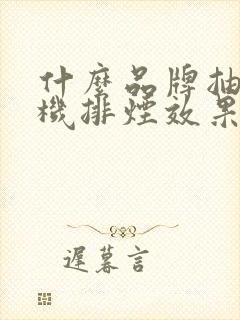 什麼品牌抽
機排煙效果
遲暮言